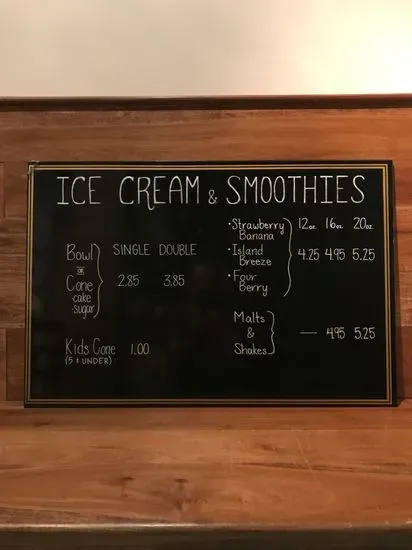 ICE CREAM & SMOOTHIES
SINGLE DOUBLE
Bowl
or
Cone
·cake
·sugar
2.85 3.85
Kids Cone 1.00
(5 & UNDER)
12oz. 16oz. 20oz.
·Strawberry
Banana
·Island
Breeze
·Four
Berry
4.25 4.95 5.25
Malts
&
Shakes
— 4.95 5.25